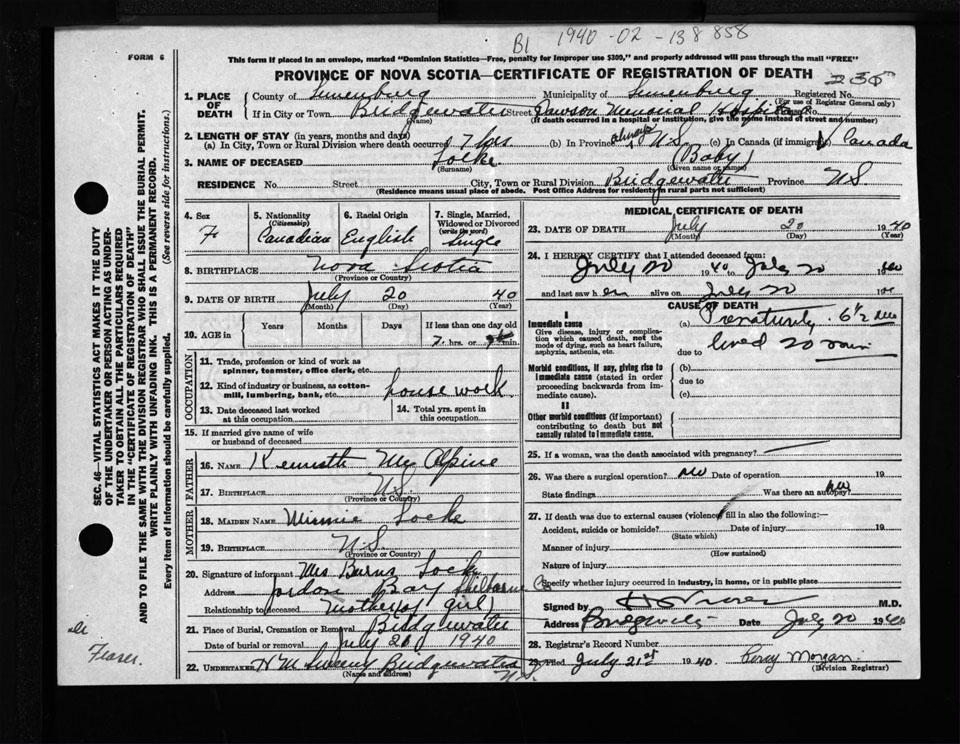 B1 1940-02-138858
FORM 6
This form if placed in an envelope, marked "Dominion Statistics—Free, penalty for improper use $300," and properly addressed will pass through the mail "FREE"
PROVINCE OF NOVA SCOTIA—CERTIFICATE OF REGISTRATION OF DEATH
236
1. PLACE OF DEATH
County of Lunenburg Municipality of Lunenburg Registered No.
(For use of Registrar General only)
If in City or Town Bridgewater Street Dawson Memorial Hospital No.
(Name) (If death occurred in a hospital or institution, give the name instead of street and number)
2. LENGTH OF STAY (in years, months and days)
(a) In City, Town or Rural Division where death occurred 7 hrs (b) In Province always N.S. (c) In Canada (if immigrant) Canada
3. NAME OF DECEASED Locke (Baby)
(Surname) (Given name or names)
RESIDENCE No. Street City, Town or Rural Division Bridgewater Province N.S
(Residence means usual place of abode. Post Office Address for residents in rural parts not sufficient)
4. Sex F
5. Nationality (Citizenship) Canadian
6. Racial Origin English
7. Single, Married, Widowed or Divorced (write the word) Single
8. BIRTHPLACE Nova Scotia
(Province or Country)
9. DATE OF BIRTH July 20 40
(Month) (Day) (Year)
10. AGE in Years Months Days If less than one day old
7. hrs. or min.
OCCUPATION
11. Trade, profession or kind of work as spinner, teamster, office clerk, etc.
12. Kind of industry or business, as cotton-mill, lumbering, bank, etc. house work
13. Date deceased last worked at this occupation
14. Total yrs. spent in this occupation
15. If married give name of wife or husband of deceased
FATHER
16. NAME Kenneth McAlpine
17. BIRTHPLACE N.S.
(Province or Country)
MOTHER
18. MAIDEN NAME Minnie Locke
19. BIRTHPLACE N.S.
(Province or Country)
20. Signature of informant Mrs Burns Locke
Address Jordan Bay Shelburne Co
Relationship to deceased mother (of girl)
21. Place of Burial, Cremation or Removal Bridgewater
Date of burial or removal July 20 1940
22. UNDERTAKER Bridgewater
(Name and address) N.S.
MEDICAL CERTIFICATE OF DEATH
23. DATE OF DEATH July 20 1940
(Month) (Day) (Year)
24. I HEREBY CERTIFY that I attended deceased from:
July 20 1940 to July 20 1940
and last saw her alive on July 20 19
CAUSE OF DEATH
I
Immediate cause
Give disease, injury or complication which caused death, not the mode of dying, such as heart failure, asphyxia, asthenia, etc.
(a) Prematurity. 6½ mos
due to lived 20 min
Morbid conditions, if any, giving rise to immediate cause (stated in order proceeding backwards from immediate cause).
(b)
due to
(c)
II
Other morbid conditions (if important) contributing to death but not causally related to immediate cause.
25. If a woman, was the death associated with pregnancy?
26. Was there a surgical operation? no Date of operation 19
State findings Was there an autopsy? no
27. If death was due to external causes (violence) fill in also the following:—
Accident, suicide or homicide? Date of injury 19
(State which)
Manner of injury
(How sustained)
Nature of injury
Specify whether injury occurred in industry, in home, or in public place
Signed by M.D.
Address Bridgewater Date July 20 1940
28. Registrar's Record Number
29. Filed July 21st 1940. Percy Morgan
(Division Registrar)
SEC. 46—VITAL STATISTICS ACT MAKES IT THE DUTY
OF THE UNDERTAKER OR PERSON ACTING AS UNDER-
TAKER TO OBTAIN ALL THE PARTICULARS REQUIRED
IN THE "CERTIFICATE OF REGISTRATION OF DEATH"
AND TO FILE THE SAME WITH THE DIVISION REGISTRAR WHO SHALL ISSUE THE BURIAL PERMIT.
WRITE PLAINLY WITH UNFADING INK. THIS IS A PERMANENT RECORD.
Every item of information should be carefully supplied. (See reverse side for instructions.)
Fraser.